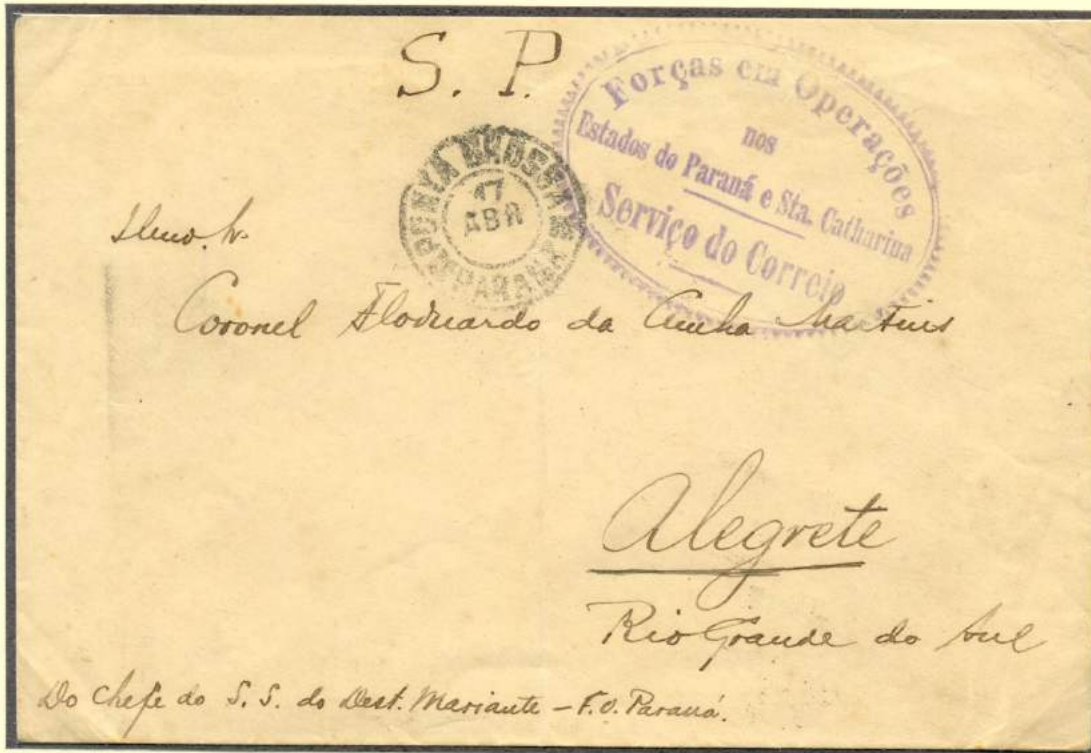 S. P.
Forças em Operações
nos
Estados do Paraná e Sta. Catharina
Serviço do Correio
PONTA GROSSA
17
ABR
PARANÁ
Coronel Floduardo da Cunha Martins
Alegrete
Rio Grande do Sul
Do Chefe do S. S. do Dest. Mariante – F. O. Paraná.